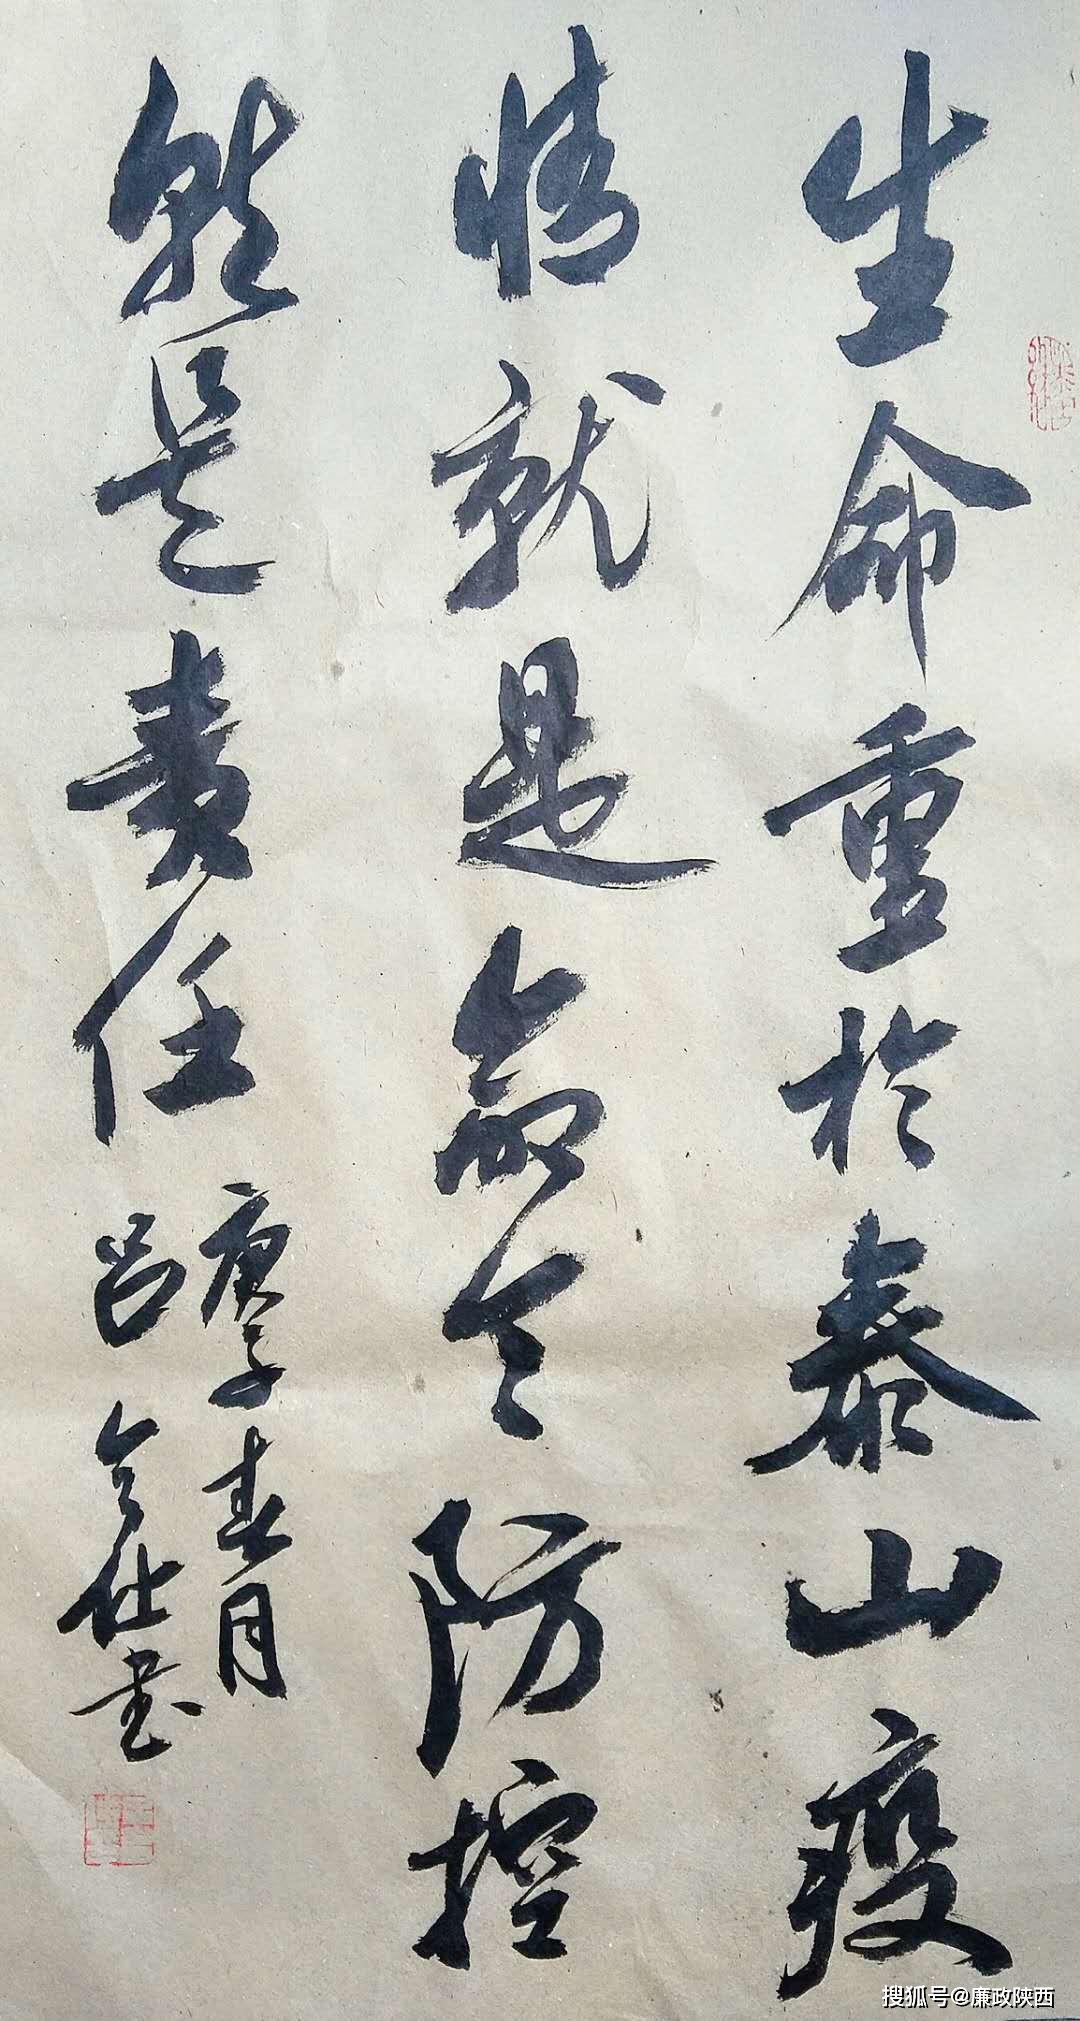 生命重於泰山疫
情就是命令防控
就是责任
庚子春月
吕会仕书
搜狐号@廉政陕西